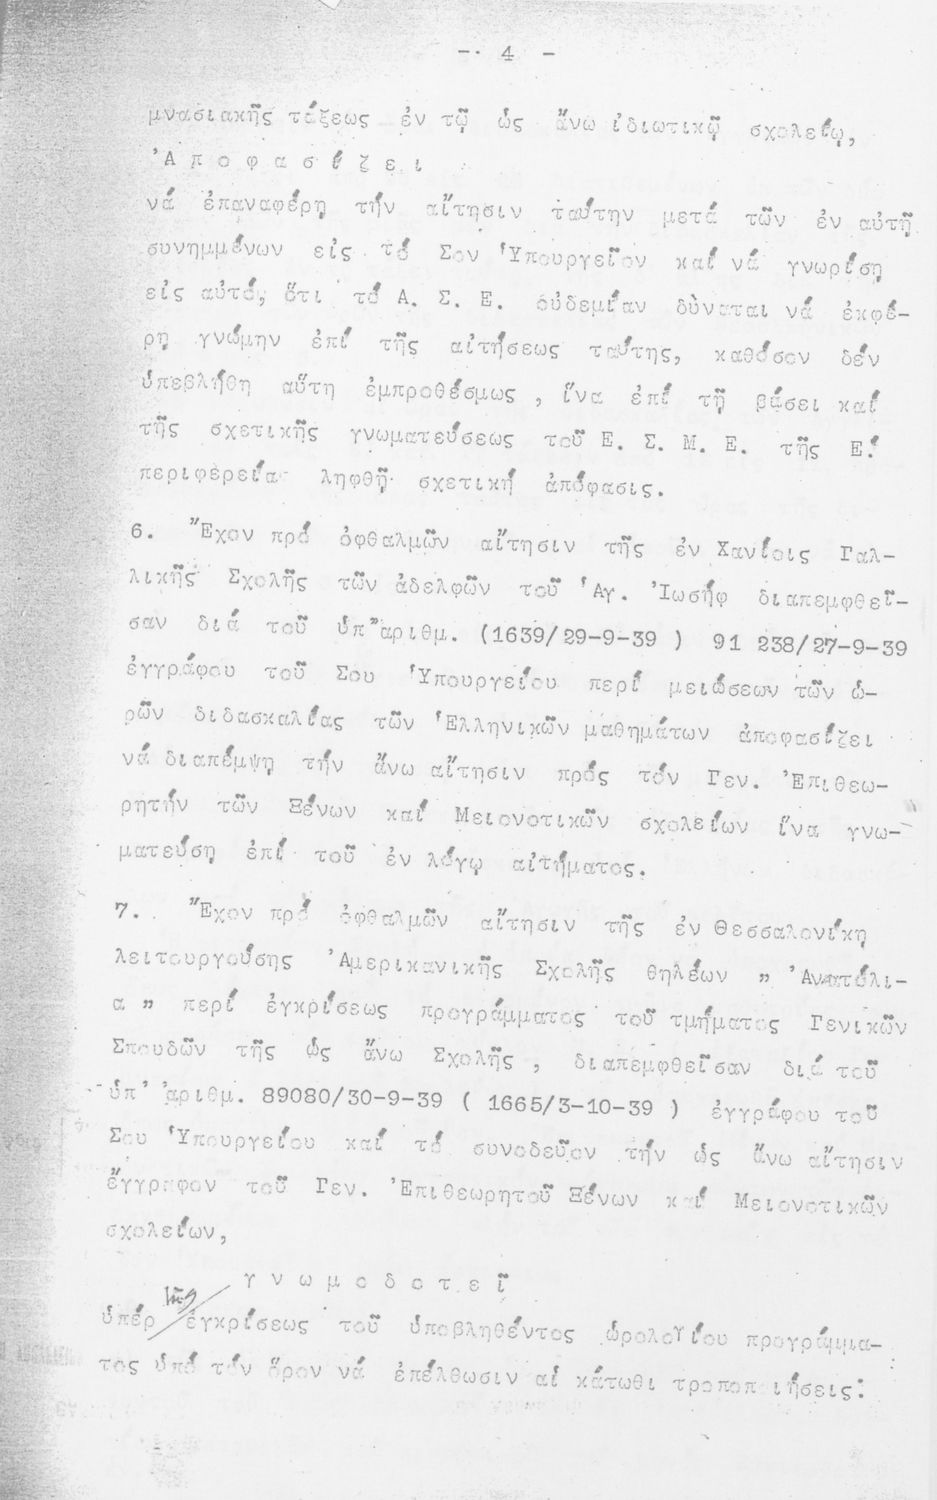 -· 4 -
μνασιακῆς τάξεως ἐν τῷ ὡς ἄνω ἰδιωτικῷ σχολείῳ,
'Α π ο φ α σ ί ζ ε ι
νά ἐπαναφέρη τήν αἴτησιν ταύτην μετά τῶν ἐν αὐτῇ
συνημμένων εἰς τό Σον Ὑπουργεῖον καί νά γνωρίση
εἰς αὐτό, ὅτι τό Α. Σ. Ε. οὐδεμίαν δύναται νά ἐκφέ-
ρη γνώμην ἐπί τῆς αἰτήσεως ταύτης, καθόσον δέν
ὑπεβλήθη αὕτη ἐμπροθέσμως , ἵνα ἐπί τῇ βάσει καί
τῆς σχετικῆς γνωματεύσεως τοῦ Ε. Σ. Μ. Ε. τῆς Ε!
περιφερείας ληφθῇ σχετική ἀπόφασις.
6. Ἔχον πρό ὀφθαλμῶν αἴτησιν τῆς ἐν Χανίοις Γαλ-
λικῆς Σχολῆς τῶν ἀδελφῶν τοῦ Ἁγ. Ἰωσήφ διαπεμφθεῖ-
σαν διά τοῦ ὑπ"ἀριθμ. (1639/29-9-39 ) 91 238/27-9-39
ἐγγράφου τοῦ Σου Ὑπουργείου περί μειώσεων τῶν ὡ-
ρῶν διδασκαλίας τῶν Ἑλληνικῶν μαθημάτων ἀποφασίζει
νά διαπέμψη τήν ἄνω αἴτησιν πρός τόν Γεν. Ἐπιθεω-
ρητήν τῶν Ξένων καί Μειονοτικῶν σχολείων ἵνα γνω-
ματεύση ἐπί τοῦ ἐν λόγῳ αἰτήματος.
7. Ἔχον πρό ὀφθαλμῶν αἴτησιν τῆς ἐν Θεσσαλονίκη
λειτουργούσης Ἀμερικανικῆς Σχολῆς θηλέων " Ἀνατόλι-
α " περί ἐγκρίσεως προγράμματος τοῦ τμήματος Γενικῶν
Σπουδῶν τῆς ὡς ἄνω Σχολῆς , διαπεμφθεῖσαν διά τοῦ
ὑπ' ἀριθμ. 89080/30-9-39 ( 1665/3-10-39 ) ἐγγράφου τοῦ
Σου Ὑπουργείου καί τό συνοδεῦον τήν ὡς ἄνω αἴτησιν
ἔγγραφον τοῦ Γεν. Ἐπιθεωρητοῦ Ξένων καί Μειονοτικῶν
σχολείων,
γ ν ω μ ο δ ο τ ε ῖ
ὑπέρ τῆς ἐγκρίσεως τοῦ ὑποβληθέντος ὡρολογίου προγράμμα-
τος ὑπό τόν ὅρον νά ἐπέλθωσιν αἱ κάτωθι τροποποιήσεις: